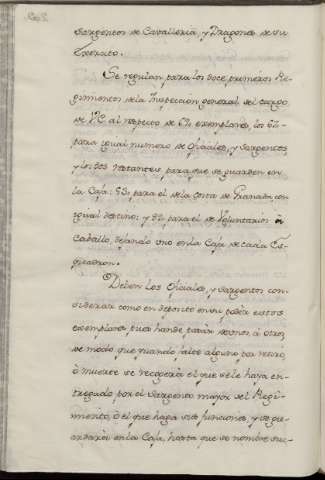 Sargentos de Cavalleria, y Dragones de su
Exercito.
Se regulan para los doce primeros Re-
gimientos de la Inspeccion general del cargo
de VE. al respecto de 62 exemplares, los 60
para igual numero de Oficiales, y Sargentos,
y los dos restantes para que se guarden en
la Caja: para el de la Costa de Granada con
igual destino; y para el de Voluntarios á
Caballo, dejando uno en la Caja de cada Es-
quadron.
Deben los Oficiales, y Sargentos con-
siderar como en deposito en su poder estos
exemplares, pues han de pasar de unos á otros,
de modo que quando falte alguno por retiro,
ó muerte se recogerá el que se le haya en-
tregado por el Sargento mayor del Regi-
miento, ó el que haga sus funciones, y se gu-
ardará en la Caja, hasta que se nombre suc-